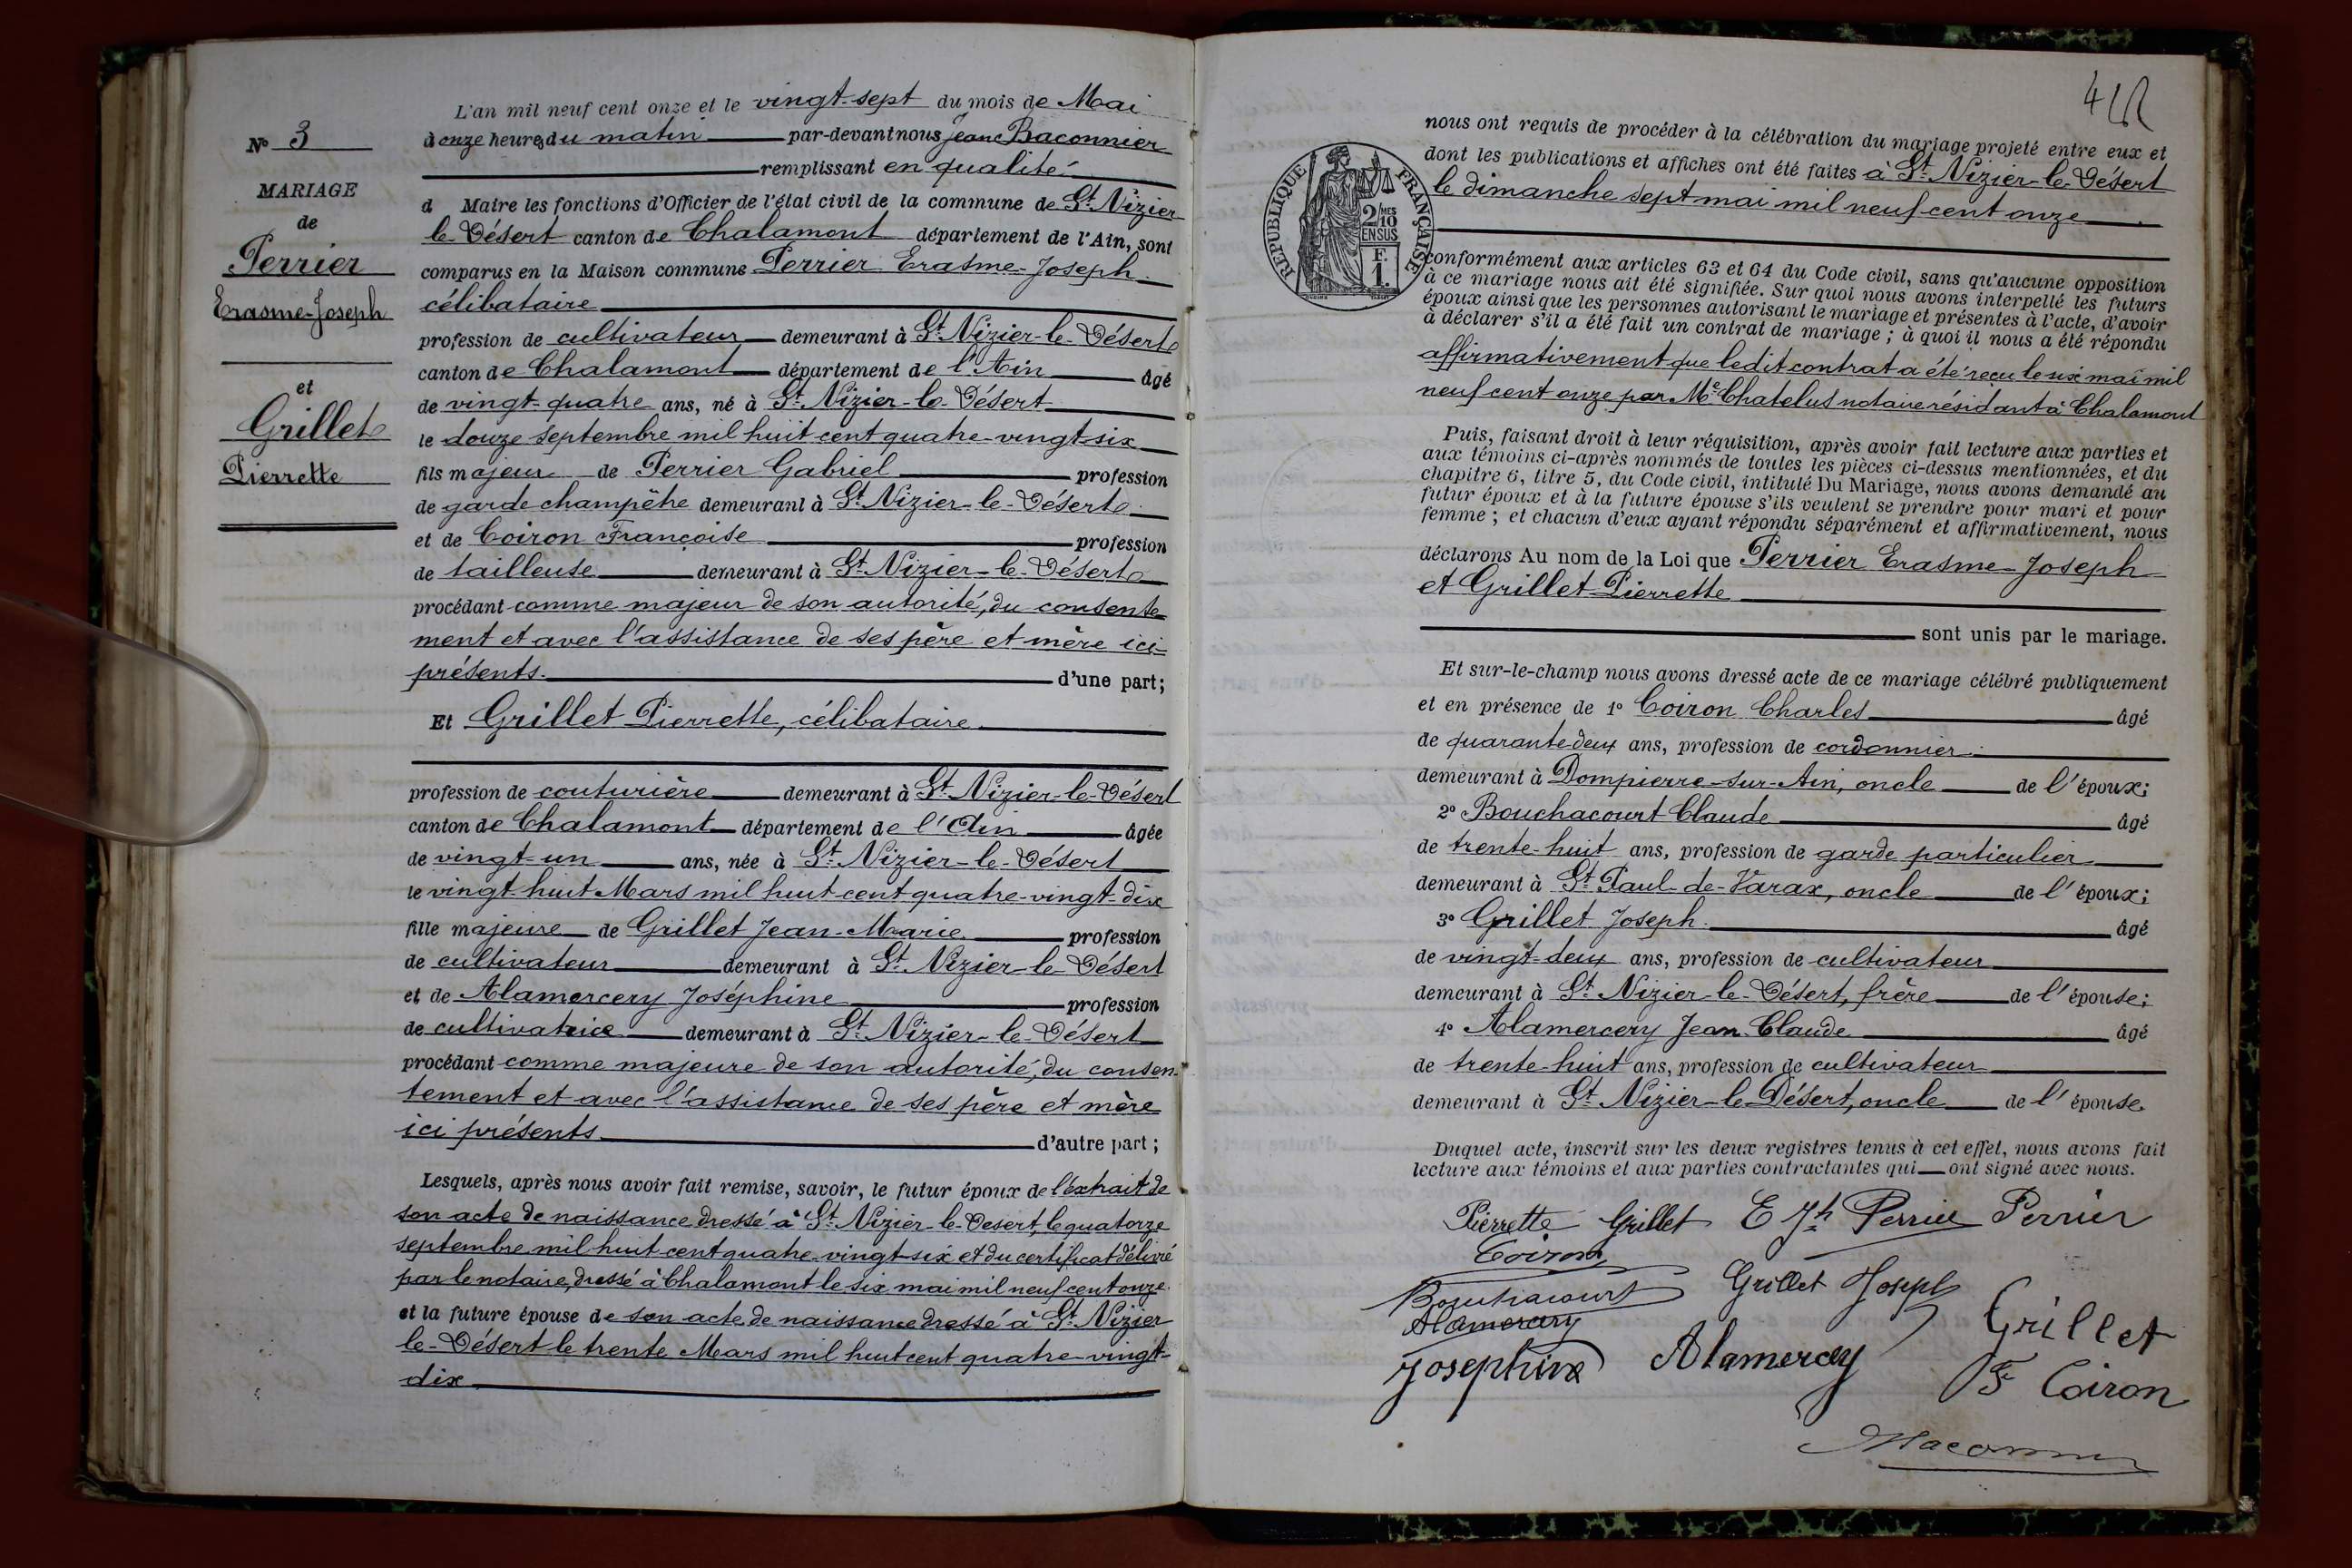 L'an mil neuf cent onze et le vingt-sept du mois de Mai
N° 3
à onze heures du matin par-devant nous Jean Baconnier
remplissant en qualité
MARIAGE
de
Perrier
Erasme-Joseph
et
Grillet
Pierrette
d Maire les fonctions d'Officier de l'état civil de la commune de St Nizier
le-Désert canton de Chalamont département de l'Ain, sont
comparus en la Maison commune Perrier Erasme-Joseph
célibataire
profession de cultivateur demeurant à St Nizier-le-Désert
canton de Chalamont département de l'Ain âgé
de vingt-quatre ans, né à St Nizier-le-Désert
le douze septembre mil huit cent quatre-vingt-six
fils majeur de Perrier Gabriel profession
de garde champêtre demeurant à St Nizier-le-Désert
et de Coiron Françoise profession
de tailleuse demeurant à St Nizier-le-Désert
procédant comme majeur de son autorité, du consente
ment et avec l'assistance de ses père et mère ici
présents. d'une part;
Et Grillet Pierrette, célibataire
profession de couturière demeurant à St Nizier-le-Désert
canton de Chalamont département de l'Ain âgée
de vingt-un ans, née à St Nizier-le-Désert
le vingt-huit Mars mil huit-cent quatre-vingt-dix
fille majeure de Grillet Jean-Marie profession
de cultivateur demeurant à St Nizier-le-Désert
et de Alamercery Joséphine profession
de cultivatrice demeurant à St Nizier-le-Désert
procédant comme majeure de son autorité, du consen-
tement et avec l'assistance de ses père et mère
ici présents d'autre part;
Lesquels, après nous avoir fait remise, savoir, le futur époux de l'extrait de
son acte de naissance dressé à St Nizier-le-Desert, le quatorze
septembre mil huit cent quatre-vingt-six et du certificat délivré
par le notaire, dressé à Chalamont le six mai mil neuf cent onze.
et la future épouse de son acte de naissance dressé à St Nizier
le-Désert le trente Mars mil huit cent quatre-vingt-
dix
REPUBLIQUE FRANÇAISE
2/MES
10
EN SUS
F.
1.
nous ont requis de procéder à la célébration du mariage projeté entre eux et
dont les publications et affiches ont été faites à St Nizier-le-Désert
le dimanche sept mai mil neuf cent onze
conformément aux articles 63 et 64 du Code civil, sans qu'aucune opposition
à ce mariage nous ait été signifiée. Sur quoi nous avons interpellé les futurs
époux ainsi que les personnes autorisant le mariage et présentes à l'acte, d'avoir
à déclarer s'il a été fait un contrat de mariage; à quoi il nous a été répondu
affirmativement que ledit contrat a été reçu le six mai mil
neuf cent onze par Me Chatelus notaire résidant à Chalamont
Puis, faisant droit à leur réquisition, après avoir fait lecture aux parties et
aux témoins ci-après nommés de toutes les pièces ci-dessus mentionnées, et du
chapitre 6, titre 5, du Code civil, intitulé Du Mariage, nous avons demandé au
futur époux et à la future épouse s'ils veulent se prendre pour mari et pour
femme; et chacun d'eux ayant répondu séparément et affirmativement, nous
déclarons Au nom de la Loi que Perrier Erasme-Joseph
et Grillet Pierrette
sont unis par le mariage.
Et sur-le-champ nous avons dressé acte de ce mariage célébré publiquement
et en présence de 1° Coiron Charles âgé
de quarante-deux ans, profession de cordonnier
demeurant à Dompierre-sur-Ain, oncle de l'époux;
2° Bouchacourt Claude âgé
de trente-huit ans, profession de garde particulier
demeurant à St Paul-de-Varax, oncle de l'époux;
3° Grillet Joseph. âgé
de vingt-deux ans, profession de cultivateur
demeurant à St Nizier-le-Désert, frère de l'épouse;
4° Alamercery Jean-Claude âgé
de trente-huit ans, profession de cultivateur
demeurant à St Nizier-le-Désert, oncle de l'épouse.
Duquel acte, inscrit sur les deux registres tenus à cet effet, nous avons fait
lecture aux témoins et aux parties contractantes qui ont signé avec nous.
Pierrette Grillet E Jh Perrier Perrier
Coiron
Bouchacourt Grillet Joseph
Alamercery Grillet
Josephine Alamercey
F Coiron